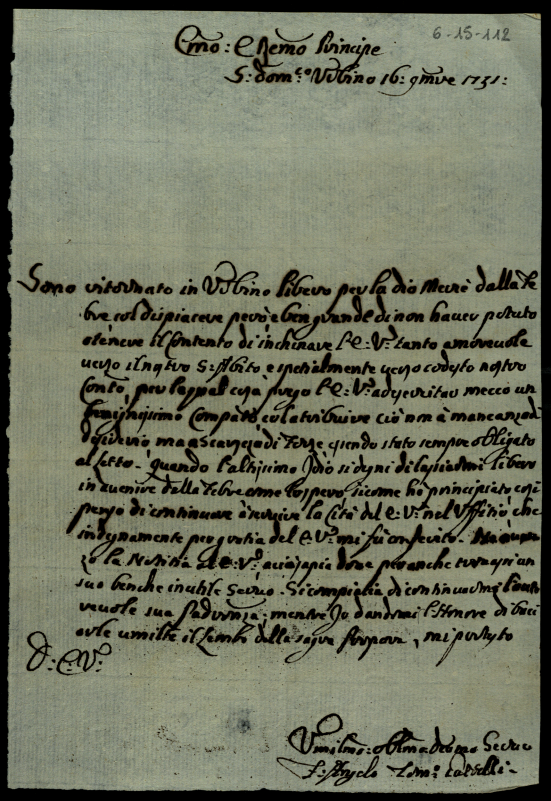 6-15-112
Emo: e Remo Principe
S: Dom:co Urbino 16: 9mre 1731:
Sono ritornato in Urbino libero per la dio Mercè dalla fe
bre col dispiacere però e ben grande di non haver potuto
otenere il Contento di inchinare l'E: V: tanto amorevole
verso il nostro S: Abito e spetialmente verso codesto nostro
Conto, per la qual cosa prego l'E: V: ad esercitar mecco un
benignissimo Compato col atribuire ciò non à mancanza di
desiderio ma a scarsezza di forze essendo stato sempre obligato
al letto. quando l'altissimo Idio si degni di lasciarmi libero
in avenire dalla febre come lo spero sicome ho principiato così
penso di continuare à servire la Città del E: V: nel Uffitio che
indegnamente per gratia del E: V: mi fù conferito.
zo la Notitia al E: V: acciò sapia dove per anche trovasi un
suo benche inutile Servo. Si compiaccia di continuarmi l'auto
revole sua Padronza; mentre Io dandomi l'Honore di baci
arle umilte il lembo della sagra Porpora, mi protesto
D: E: V:
Umilmo: Oblmo Devmo Servo
F: Angelo Tom: